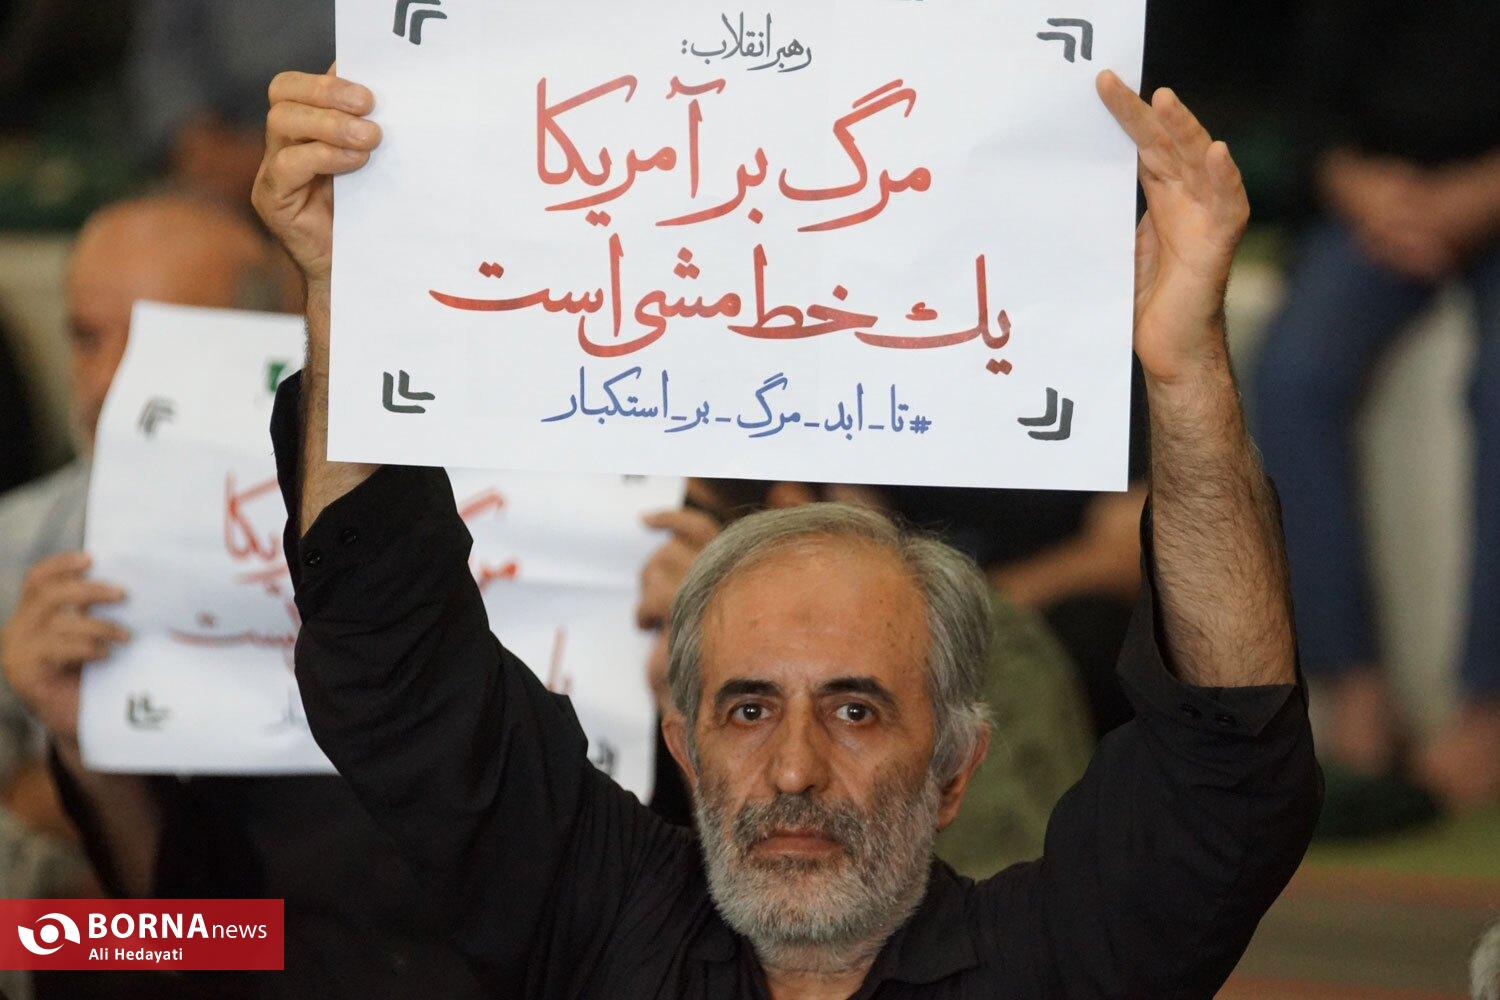 رهبر انقلاب:
مرگ بر آمریکا
یك خط مشی است
#تا_ابد_مرگ_بر_استکبار
مرگ
یکا
است
BORNAnews
Ali Hedayati